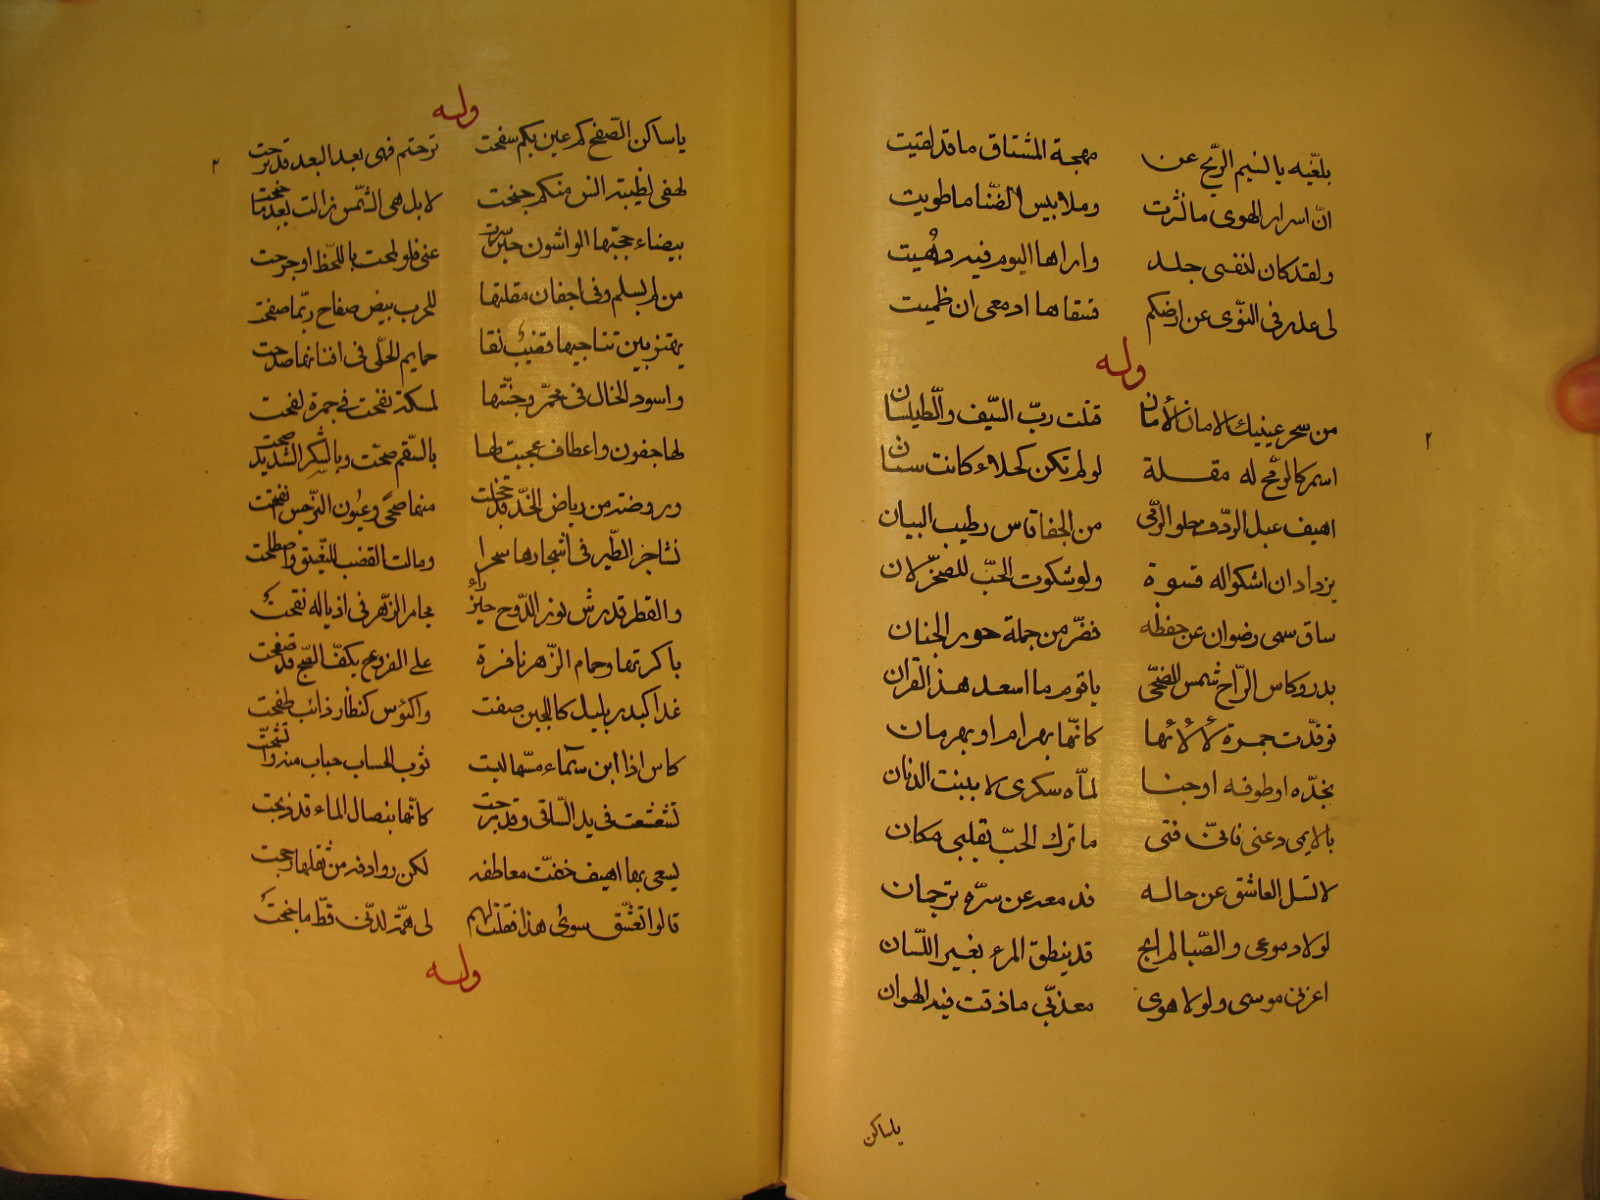 بلغيه يا نسيم الريح عن مهجة المشتاق ما قد لقيت
انّ اسرار الهوى ما نُثرت وملابيس الضّنا ما طويت
ولقد كان لنفسى جلد واراها اليوم فيه وهُيت
لى عذر فى النّوى عن ارضكم فسقاها ادمعى ان ظميت
وله
من سحر عينيك الامان الأمان قتلت ربّ السّيف والطّيلسان
٢
اسمر كالرّمح له مقلة لو لم تكن كحلاء كانت سنان
اهيف عبل الردف حلو من الجفا قاس رطيب البيان
يزداد ان اشكو اله قسوة ولو شكوت الحبّ للصخر لان
ساق سهى رضوان عن حفظه ففرّ من جملة حور الجنان
بدر وكاس الرّاح شمس الضّحى ياقوم ما اسعد هذ القران
توقّدت جمرة لألائها كانّها بهرام او بهرمان
بخدّه او طوفه اوجنا لمّاه سكرى لا ببنت الدنان
يا لايمى دعنى فانىّ فتى ما ترك الحبّ بقلبى مكان
لا تسل العاشق عن حاله فدمعه عن سرّه ترجمان
لولا دموعى والصّبا لم ابح قد ينطق المرء بغير اللّسان
اعزنى موسى ولولا هوى معذبّى ما ذقت فيه الهوان
ياساكن
وله
ياساكن الصّفح كم عين بكم سفحت نزحتم فهى بعد البعد قد نزحت
٢
لهفى لظبية انس منكم جنحت لا بل هى الشّمس زالت بعد ما جنحت
بيضاء حجّبها الواشون حين سرت عنى فلو لمحت باللّحظ او جرحت
من لم يسلم وفى اجفان مقلتها للحرب بيض صفاح ربّما صفحت
يهتز بين تناجيها قضيب نقا حمايم الحلّى فى افنانها صدحت
واسود الخال فى محمرّ وجنتّها لمسكة نفحت فى جمرة لفحت
لها جفون واعطاف عجبت لها بالسّقم صحّت وبالسّكر الشّديد صحت
وروضة من رياض الخدّ قد دخلت منها ضحًى وعيون النّرجس انفتحت
تشاجر الطّير فى اشجارها سحرا ومالت القضب للتّعنيق واصطلحت
والقطر قد رش ثوب الدّوح حين رأى مجامر الزّهر فى اذياله نفحت
باكرتها وحمام الزّهر نافرة على الفروع بكفّ الصّبح قد صفحت
غداكبدر بليل كاللجين صفت واكئوس كنضار ذائب طفحت
كاس اذا ابن سماء مسّها لبست ثوب الحساب حباب منه واتّشحت
تشعشعت فى يد السّاقى وقد برحت كانّها بنصال الماء قد ذبحت
يسعى بها اهيف خفّت معاطفه لكن روادفه من ثقلها رجحت
قالوا تعشّق سوى هذا فقلت لهم لى همّة لدنّى قطّ ما جنحت
وله